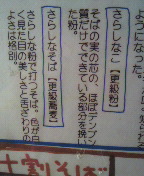 ようになった。
さらしなこ【更級粉】
そばの実の芯の、ほぼデンプン
質だけでできている部分を挽い
た粉。
さらしなそば【更級蕎麦】
さらしな粉で打つそば。色が白
く見た目の美しさと舌ざわりの
よさは格別。
十割そば